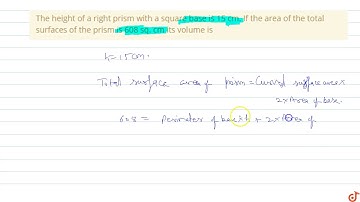 The height of a right prism with a square base is 15 cm. If the area of the total
surfaces of the prism is 608 sq. cm its volume is
h=15cm.
Total surface area of prism = Curved surface area +
2×Area of base.
608 = Perimeter of base×h + 2×Area of